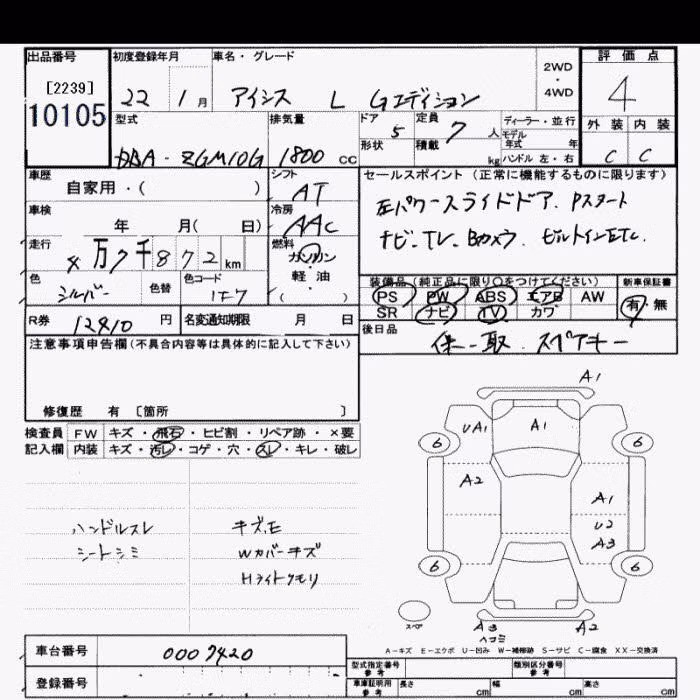 出品番号 初度登録年月 車名・グレード 2WD・4WD 評価点
[2239] 22 1月 アイシス L Gエディション 4
10105 型式 排気量 ドア 5 定員 7人 ディーラー・並行 外装 内装
モデル年式 年
DBA-ZGM10G 1800 cc 形状 積載 kg ハンドル 左・右 C C
車歴 シフト セールスポイント (正常に機能するものに限ります)
自家用・( ) AT 左パワースライドドア. Pスタート
車検 冷房
年 月( 日) AAC ナビ-TV. Bカメラ. ビルトインETC.
走行 燃料
4万7千872km ガソリン
色 色替 色コード 軽・油 装備品 (純正品に限り○をつけてください) 新車保証書
シルバー 1F7 ( ) PS PW ABS エアB AW 有・無
SR ナビ TV カワ
R券 12410円 名変通知期限 月 日 後日品
注意事項申告欄(不具合内容等は具体的に記入して下さい) 保-取. スペアキー
修復歴 有 〔箇所 〕
検査員 FW キズ・飛石・ヒビ割・リペア跡・×要
記入欄 内装 キズ・汚レ・コゲ・穴・スレ・キレ・破レ
A1
UA1 A1
6 6
A2 A1
ハンドルスレ キズ、E U2
シートシミ Wカバーキズ A3
Hライトクモリ
6 6
スペア A3 A2
ヘコミ
A-キズ E-エクボ U-凹み W-補修跡 S-サビ C-腐食 XX-交換済
車台番号 0007420
型式指定番号 参考 類別区分番号 参考
登録番号 車庫証明用 参考 長さ cm 幅 cm 高さ cm